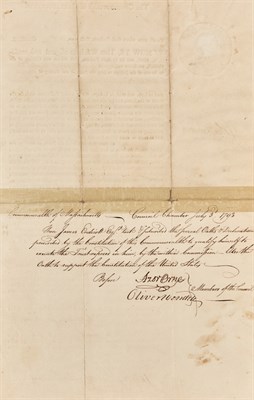 Commonwealth of Massachusetts Council Chamber July 3d 1793
Then James Endicott Esqr took & subscribed the several Oaths & Declarations
prescribed by the Constitution of this Commonwealth to qualify himself to
execute the Trust reposed in him, by the within Commission. Also the
Oath to support the Constitution of the United States
Before
Azor Orne
Oliver Wendell
Members of the